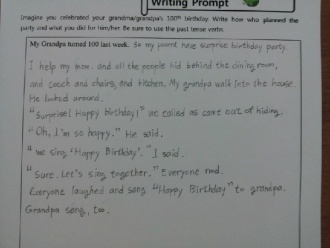 Writing Prompt
Imagine you celebrated your grandma/grandpa's 100th birthday. Write how who planned the
party and what you did for him/her. Be sure to use the past tense verbs.
My Grandpa turned 100 last week. So my parent have surprise birthday party.
I help my mom. And all the people hid behind the dining room,
and coach and chairs, and kitchen. My grandpa walk into the house.
He looked around.
"Surprise! Happy birthday!" we called as came out of hiding.
"Oh, I'm so happy." He said.
"We sing 'Happy Birthday'." I said.
"Sure. Let's sing together." Everyone
Everyone laughed and sang "Happy Birthday" to grandpa.
Grandpa song, too.